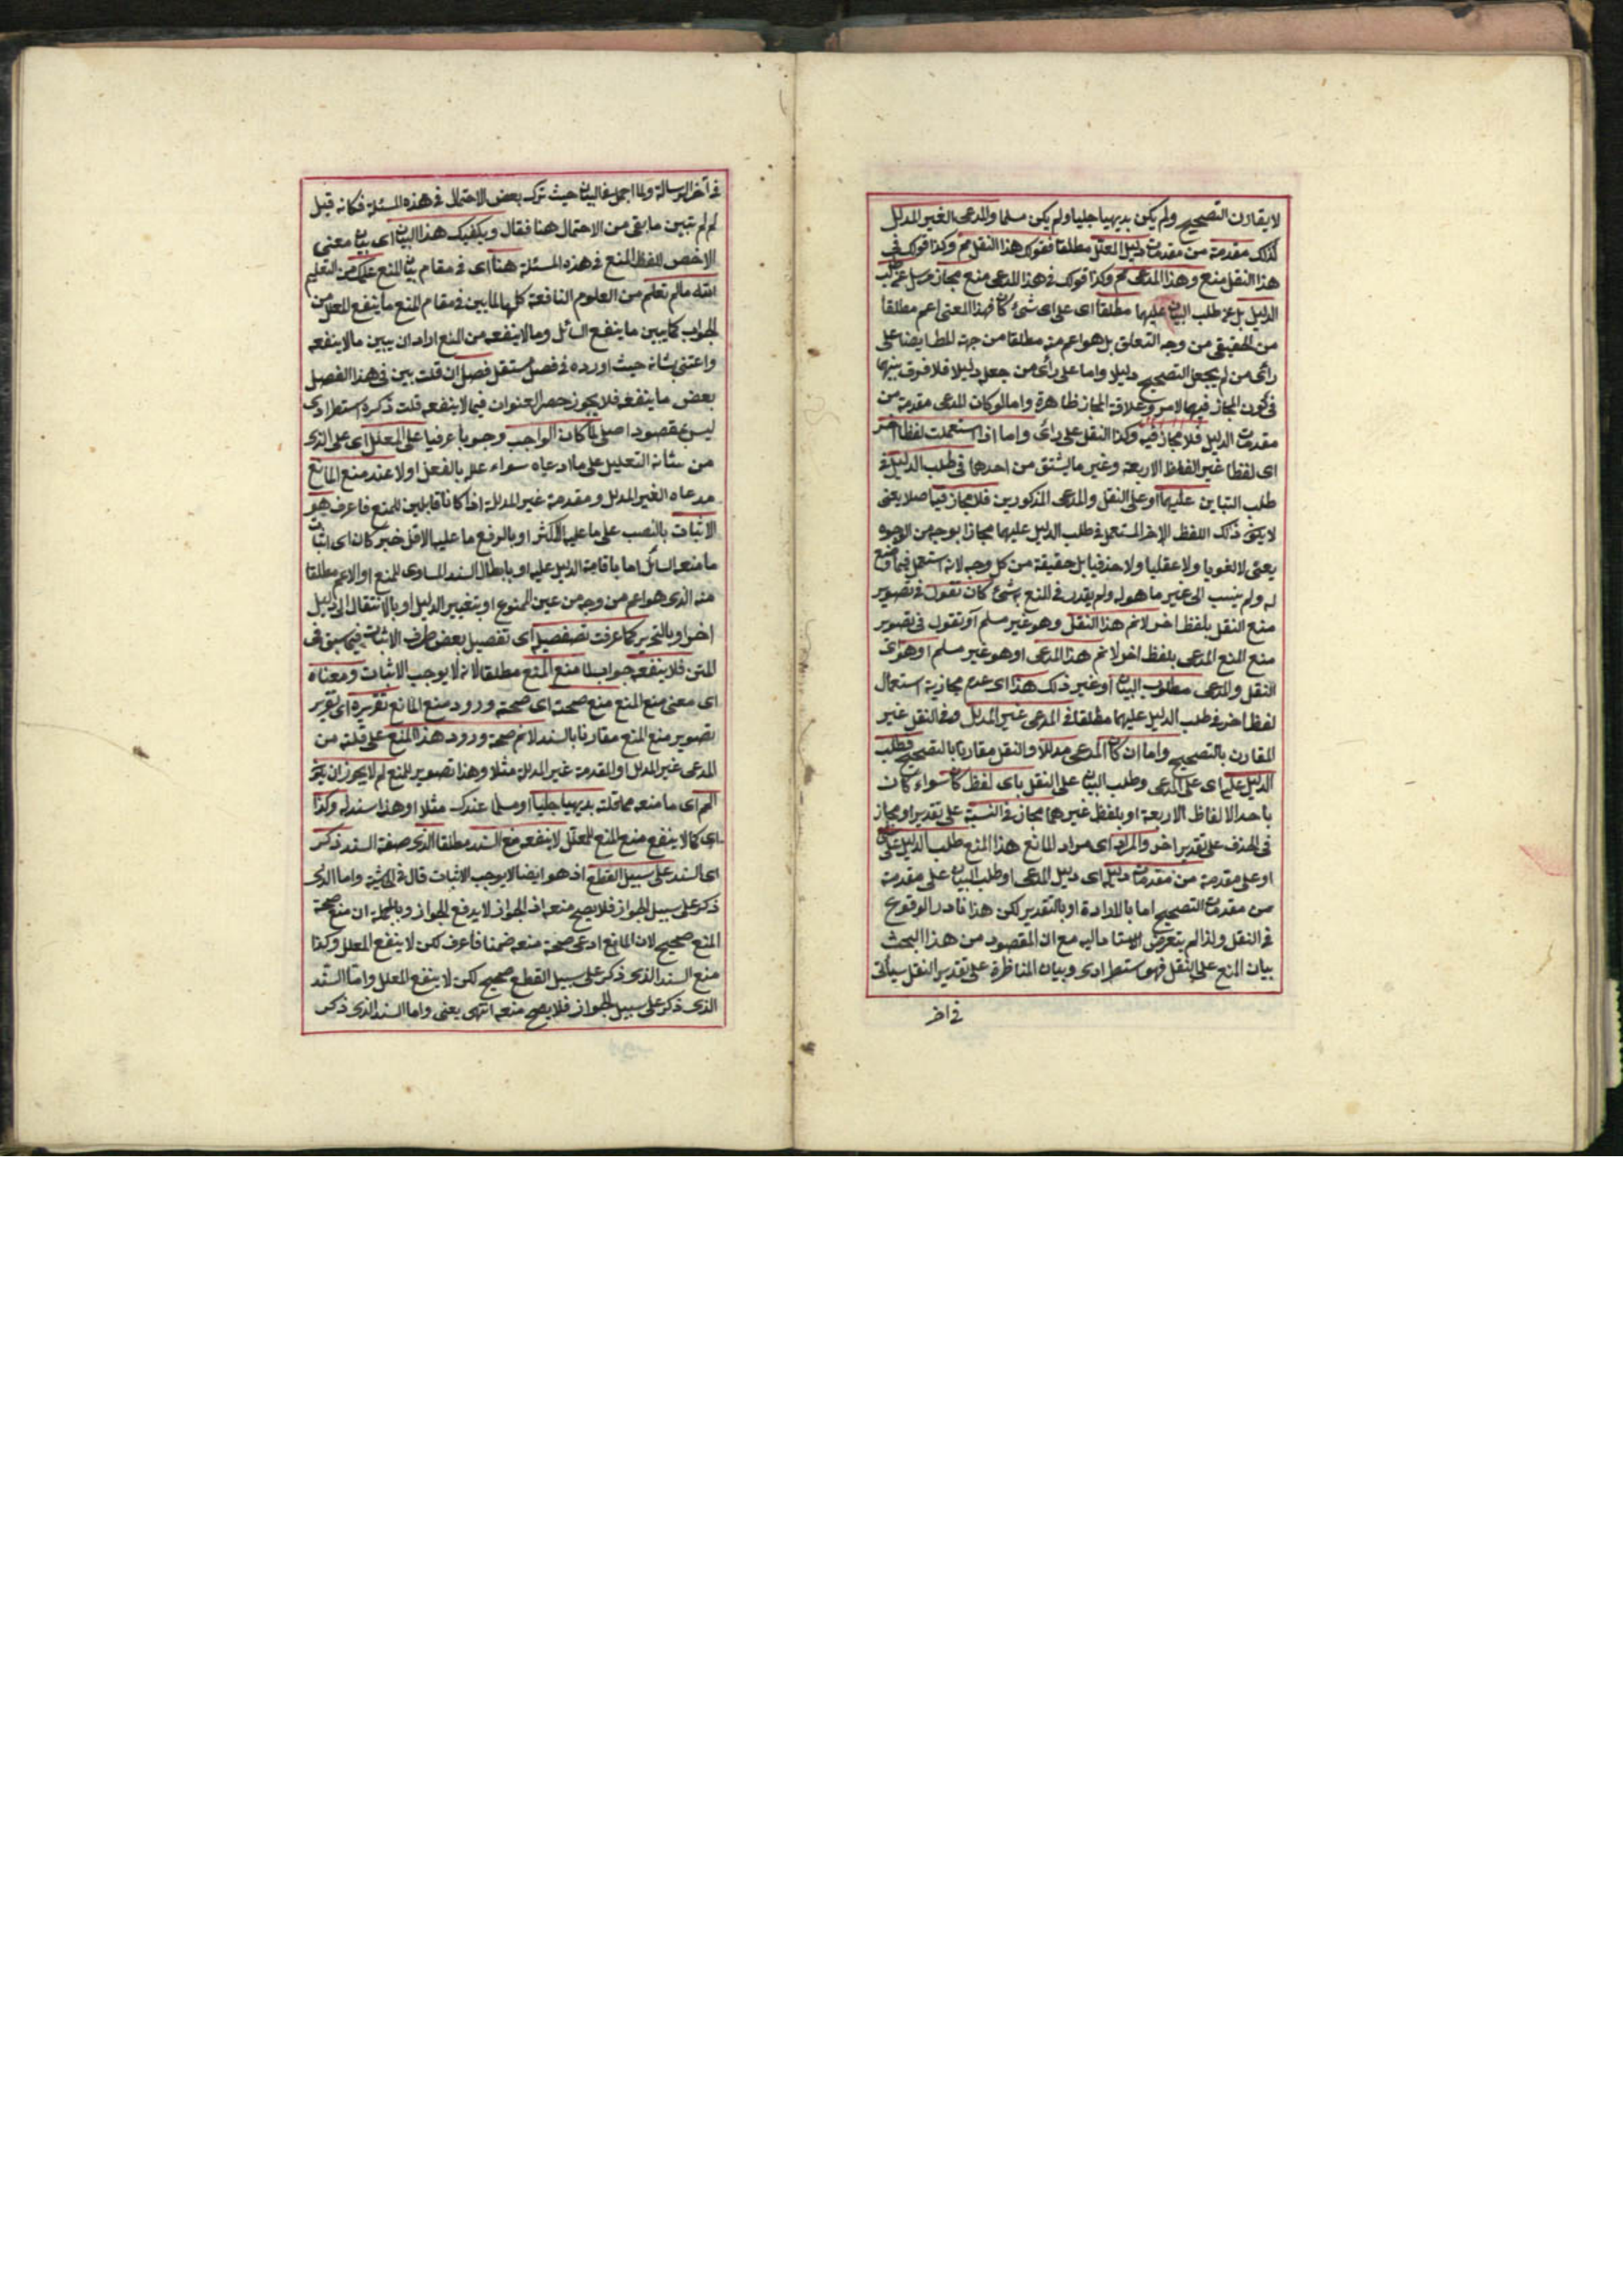 لا يقارن التصحيح ولم يكن بديهيا جليا ولم يكن مسلما والمدعى الغير المدلل
كذلك مقدمة من مقدمات دليل المعلل مطلقا فقولك هذا النقل مم وكذا قولك في
هذا النقل منع وهذا المدعى مم وكذا قولك في هذا المدعى منع مجاز مرسل عن طلب
الدليل بل عن طلب البيان عليهما مطلقا اى على اى شئ كان فهذا المعنى اعم مطلقا
من الحقيقى من وجه التعلق بل هو اعم منه مطلقا من جهة المط ايضا على
رأى من لم يجعل التصحيح دليلا واما على رأى من جعل دليلا فلا فرق بينهما
فى كون المجاز فيهما لامر وعلاقة المجاز ظاهرة واما لو كان المدعى مقدمة من
مقدمات الدليل فلا مجاز فيه وكذا النقل على رأى واما اذا استعملت لفظا اخر
اى لفظا غير الفاظ الاربعة وغير ما يشتق من احدها فى طلب الدليل فى
طلب البيان عليهما او على النقل والمدعى المذكورين فلا مجاز فيه اصلا يعنى
لا يكون ذلك اللفظ الاخر المستعمل فى طلب الدليل عليهما مجازا بوجه من الوجوه
يعنى لا لغويا ولا عقليا ولا حذفيا بل حقيقة من كل وجه لانه استعمل فيما وضع
له ولم ينسب الى غير ما هو له ولم يقدر فى المنع شئ كان تقول فى تصوير
منع النقل بلفظ اخر لا نم هذا النقل وهو غير مسلم او تقول فى تصوير
منع المنع المدعى بلفظ اخر لا نم هذا المدعى او هو غير مسلم او هو اى
النقل والمدعى مطلوب البيان او غير ذلك هذا اى عدم مجازية استعمال
لفظ اخر فى طلب الدليل عليهما مطلقا فى المدعى غير المدلل وفى النقل غير
المقارن بالتصحيح واما ان كان المدعى مدللا والنقل مقارنا بالتصحيح فطلب
الدليل عليه اى على المدعى وطلب البيان على النقل باى لفظ كان سواء كان
باحد الالفاظ الاربعة او بلفظ غيرهما مجاز فى النسبة على تقدير او مجاز
فى الحذف على تقدير اخر والمراد اى مراد المانع هذا المنع طلب الدليل على
او على مقدمة من مقدمات دليله اى دليل المدعى او طلب البيان على مقدمة
من مقدمات التصحيح اما بالارادة او بالتقدير لكن هذا نادر الوقوع
فى النقل ولذا لم يتعرض الاستاد اليه مع ان المقصود من هذا البحث
بيان المنع على النقل فهو استطرادى وبيان المناظرة على تقدير النقل سيأتى
فى اخر
فى آخر الرسالة ولما اجمل فى البيان حيث ترك بعض الاحتمال فى هذه المسئلة فكانه قيل
لم لم تبين ما بقى من الاحتمال هنا فقال ويكفيك هذا البيان اى بيان معنى
الاخص للفظ المنع فى هذه المسئلة هنا اى فى مقام بيان المنع علمك من التعليم
الله مالم تعلم من العلوم النافعة كلها لما بين فى مقام المنع ما ينفع المعلل من
الجواب كما يبين ما ينفع السائل وما لا ينفعه من المنع اراد ان يبين ما لا ينفعه
واعتنى بشانه حيث اورده فى فصل مستقل فصل ان قلت بين فى هذا الفصل
بعض ما ينفعه فلا يجوز حصر العنوان فيما لا ينفعه قلت ذكره استطرادى
ليس بمقصود اصلى لما كان الواجب وجوبا عرفيا على المعلل اى على الذى
من شانه التعليل على ما ادعاه سواء علل بالفعل او لا عند منع المانع
مدعاه الغير المدلل ومقدمة غير المدللة اذا كانا قابلين للمنع فاعرف هو
الاثبات بالنصب على ما عليه الاكثر او بالرفع ما عليه الاقل خبر كان اى اثبات
ما منعه السائل اما باقامة الدليل عليه او بابطال السند المساوى للمنع او الاعم مطلقا
منه الذى هو اعم من وجه من عين الممنوع او بتغيير الدليل او بالانتقال الى دليل
اخر او بالتحرير كما عرفت تفصيله اى تفصيل بعض طرف الاثبات فيما سبق فى
المتن فلا ينفعه جواب لما منع المنع مطلقا لانه لا يوجب الاثبات ومعناه
اى معنى منع المنع منع صحته اى صحة ورود منع المانع تقريره اى تقرير
تصوير منع المنع مقارنا بالسند لا نم صحة ورود هذا المنع على قلته من
المدعى غير المدلل او المقدمة غير المدللة مثلا وهذا تصوير للمنع لم لا يجوز ان يكون
الم اى ما منعه مما قلته بديهيا جليا او مسلما عندك مثلا او هذا سند له وكذا
اى كما لا ينفع منع المنع للمعلل لا ينفعه منع السند مطلقا الذى صفة السند ذكر
اى السند على سبيل القطع اذ هو ايضا لا يوجب الاثبات قال فى الحاشية واما الذى
ذكر على سبيل الجواز فلا يصح منعه اذ الجواز لا يدفع الجواز وبالجملة ان منع صحة
المنع صحيح لان المانع ادعى صحة منعه ضمنا فاعرف لكن لا ينفع المعلل وكذا
منع السند الذى ذكر على سبيل القطع صحيح لكن لا ينفع المعلل واما السند
الذى ذكر على سبيل الجواز فلا يصح منعه انتهى يعنى واما السند الذى ذكر